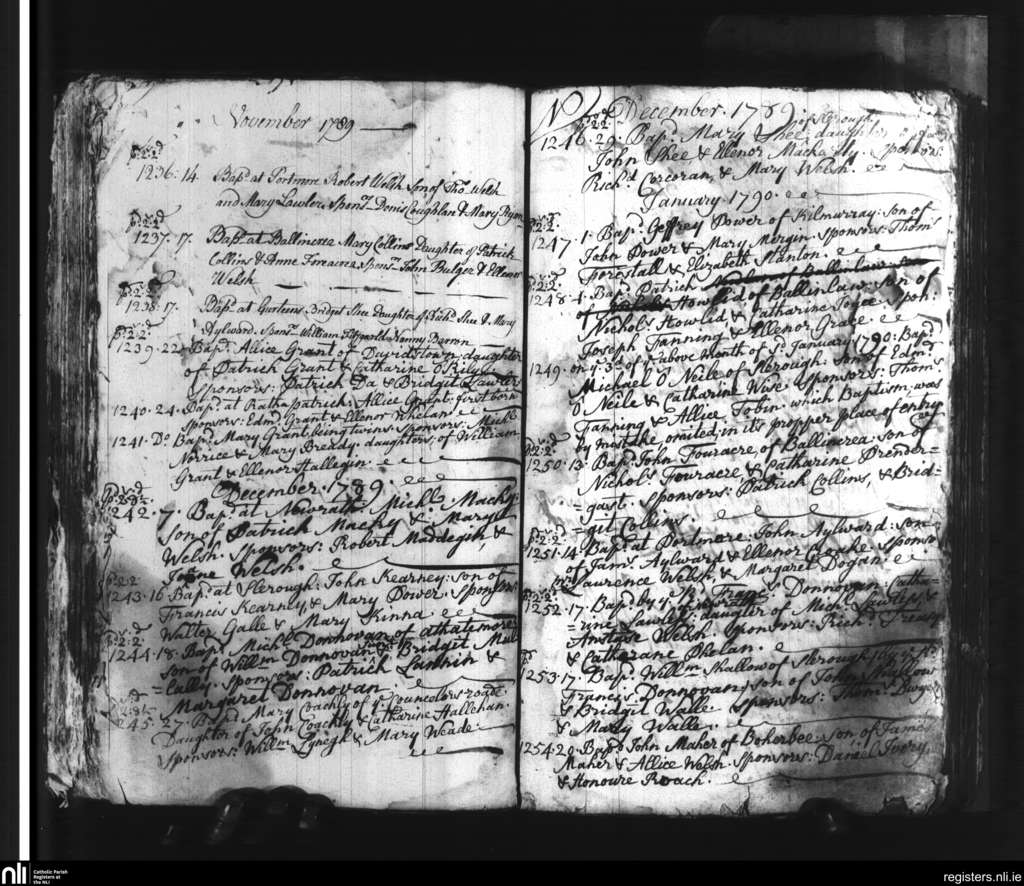 November 1789
p:2:2
1236:14. Bapd. at Portmore Robert Welsh Son of Thos. Welsh
and Mary Lawler, Sponrs. Denis Coughlan & Mary Ryan
p:2:2
1237.17. Bapd. at Ballincrea Mary Collins Daughter of Patrick
Collins & Anne Foreacrea, Sponrs. John Bulger & Ellenor
Welsh
p:2:2
1238:17. Bapd. at Gurteens Bridget Shee Daughter of Richd. Shee & Mary
Aylward. Sponrs. William Fitzgerald & Nanny Barron
p:2:2
1239.22. Bapd. Allice Grant of Davidstown, daughter
of Patrick Grant & Catharine O'Kily:
Sponsors: Patrick Da & Bridgit Lawlers
1240.24. Bapd. at Rathapatrick: Allice Grant: first born
Sponsors: Edmd. Grant & Ellenor Whelan
1241. Do. Bapd. Mary Grant, being twins. Sponsors: Michl.
Norrice & Mary Bready: daughters, of William
Grant & Ellenor Hallegin.
December. 1789.
1242.7. Bapd. at Mowrath: Michl. Macky:
Son of Patrick Macky & Mary
Welsh. Sponsors: Robert Maddegin, &
Joane Welsh.
p:2:2
1243.16 Bapd. at Slerough: John Kearney: son of
Francis Kearney, & Mary Power. Sponsors:
Walter Galle & Mary Kinna.
p:2:2
1244.18. Bapd. Michl. Donnovan of athatemore
son of Willm. Donnovan & Bridgit Mul
=Cally. Sponsors: Patrick Lannin &
Margaret Donnovan
1245.27. Bapd. Mary Coachly of ye. Councelors roade.
Daughter of John Coachly & Catharine Hallehan.
Sponsors: Willm. Lynegh & Mary Weade.
December. 1789.
of Slerough
p:2:2
1246.29. Bapd. Mary Shee: daughter of
John Shee & Ellenor Mackaly. Sponsors:
Richd. Corcoran, & Mary Welsh.
January 1790.
p:2:2
1247.1. Bapd. Geffrey Power of Kilmurray: son of
John Power & Mary Mergin. sponsors: Thoms
Forestall & Elizabeth Stanton.
p:2:2
1248.4. Bapd. Patrick
Howlied of Ballinlaw: son of
Nichols. Howlied & Catharine Joyce. Spon:
Joseph Fanning & Ellenor Grace.
1249. on ye. 3d. of ye. above month of sd. January 1790: Bapd.
Michael O'Neile of Slerough: son of Edmd.
O'Neile & Catharine Wise. Sponsors: Thoms.
Fanning & Allice Tobin. which Baptism, was
by mistake omited, in it's propper place of entry
p:2:2
1250.13. Bapd. John Fouracre of Ballincrea: son of
Nichols. Fouracre, & Catharine Prender=
=gast. Sponsors: Patrick Collins, & Brid-
=git Collins.
p:2:2
1251.14. Bapd. at Portmore: John Aylward: son
of Jams. Aylward & Ellenor Cooke: Sponso
rs. Laurence Welsh, & Margaret Dogan
p:2:2
1252.17. Bapd. by ye. Rd. Francs. Donnovan: Catha=
=rine Lawless: daughter of Michl. Lawless &
Anstase Welsh. Sponsors: Richd. Treasy
& Catherane Phelan.
1253.17. Bapd. Willm. Shallow of Slerough by ye. Rd.
Francis Donnovan; son of John Shallow
& Bridgit Walle. sponsors: Thoms. Bwye
& Mary Walle.
1254.20. Bapd. John Maher of Boherbee: son of James
Maher & Allice Welsh. Sponsors: Daniel Ivory,
& Honoure Roach.
nli
Catholic Parish
Registers at
the NLI
registers.nli.ie